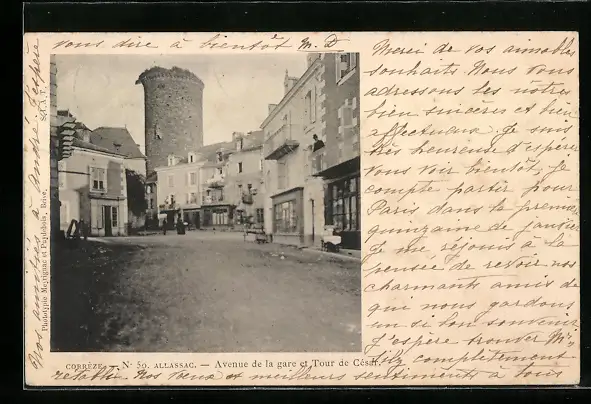 Merci de vos aimables
souhaits Nous vous
adressons les nôtres
bien sincères et bien
affectueux. Je suis
très heureuse d'espérer
vous voir bientôt, Je
compte partir pour
Paris dans la première
quinzaine de janvier
Je me réjouis à la
pensée de revoir nos
charmants amis de
qui nous gardons
un si bon souvenir,
J'espère trouver M.
complètement
rétabli Nos vœux et meilleurs sentiments à tous
Nos amitiés à André. J'espère
vous dire à bientôt M. D
Phototypie Meyrignac et Puydebois, Brive.
S.G.A.T.
CORRÈZE — N° 50. ALLASSAC. — Avenue de la gare et Tour de César.